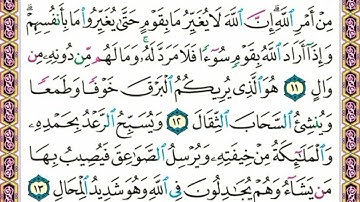 مِنْ أَمْرِ ٱللَّهِ ۗ إِنَّ ٱللَّهَ لَا يُغَيِّرُ مَا بِقَوْمٍ حَتَّىٰ يُغَيِّرُوا۟ مَا بِأَنفُسِهِمْ ۗ
وَإِذَآ أَرَادَ ٱللَّهُ بِقَوْمٍ سُوٓءًا فَلَا مَرَدَّ لَهُۥ ۚ وَمَا لَهُم مِّن دُونِهِۦ مِن
وَالٍ ١١ هُوَ ٱلَّذِى يُرِيكُمُ ٱلْبَرْقَ خَوْفًا وَطَمَعًا
وَيُنشِئُ ٱلسَّحَابَ ٱلثِّقَالَ ١٢ وَيُسَبِّحُ ٱلرَّعْدُ بِحَمْدِهِۦ
وَٱلْمَلَٰٓئِكَةُ مِنْ خِيفَتِهِۦ وَيُرْسِلُ ٱلصَّوَٰعِقَ فَيُصِيبُ بِهَا
مَن يَشَآءُ وَهُمْ يُجَٰدِلُونَ فِى ٱللَّهِ وَهُوَ شَدِيدُ ٱلْمِحَالِ ١٣